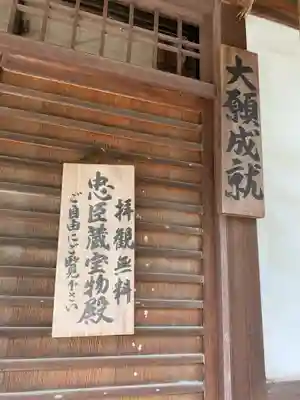 大願成就
拝観無料
忠臣蔵宝物殿
ご自由にご覧下さい